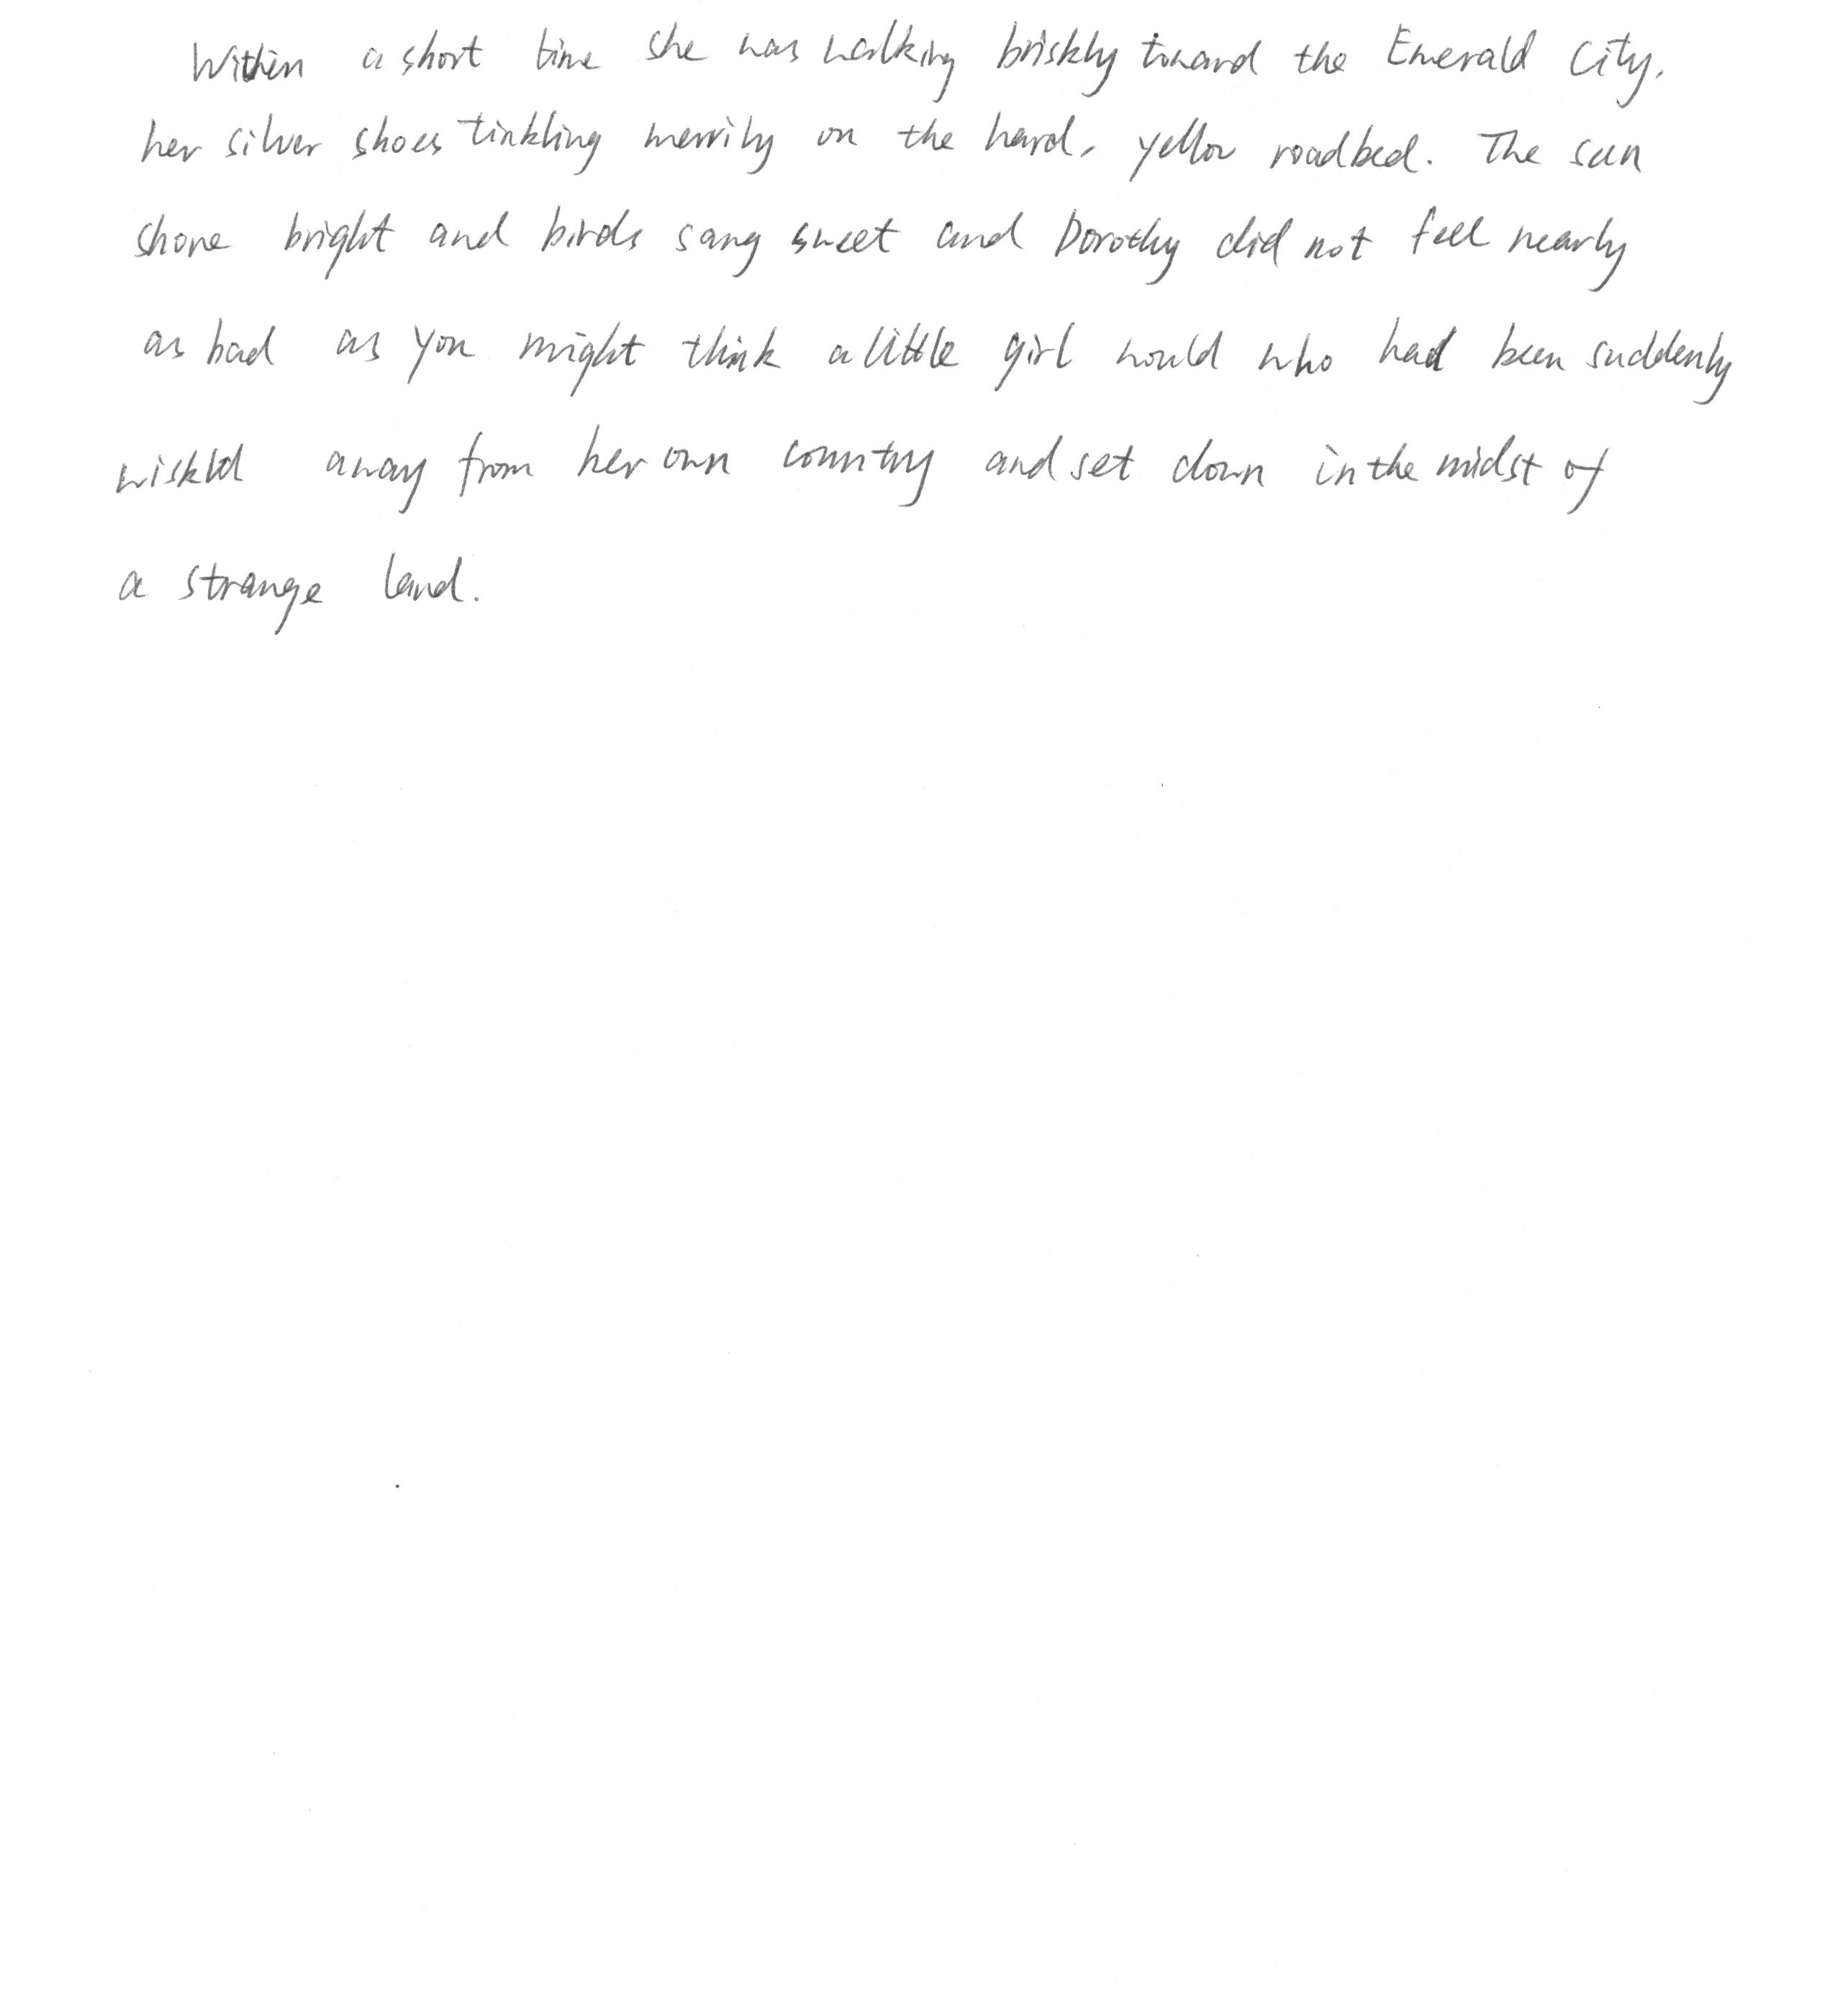 Within a short time she was walking briskly toward the Emerald City,
her silver shoes tinkling merrily on the hard, yellow roadbed. The sun
shone bright and birds sang sweet and Dorothy did not feel nearly
as bad as you might think a little girl would who had been suddenly
wiskld away from her own country and set down in the midst of
a strange land.